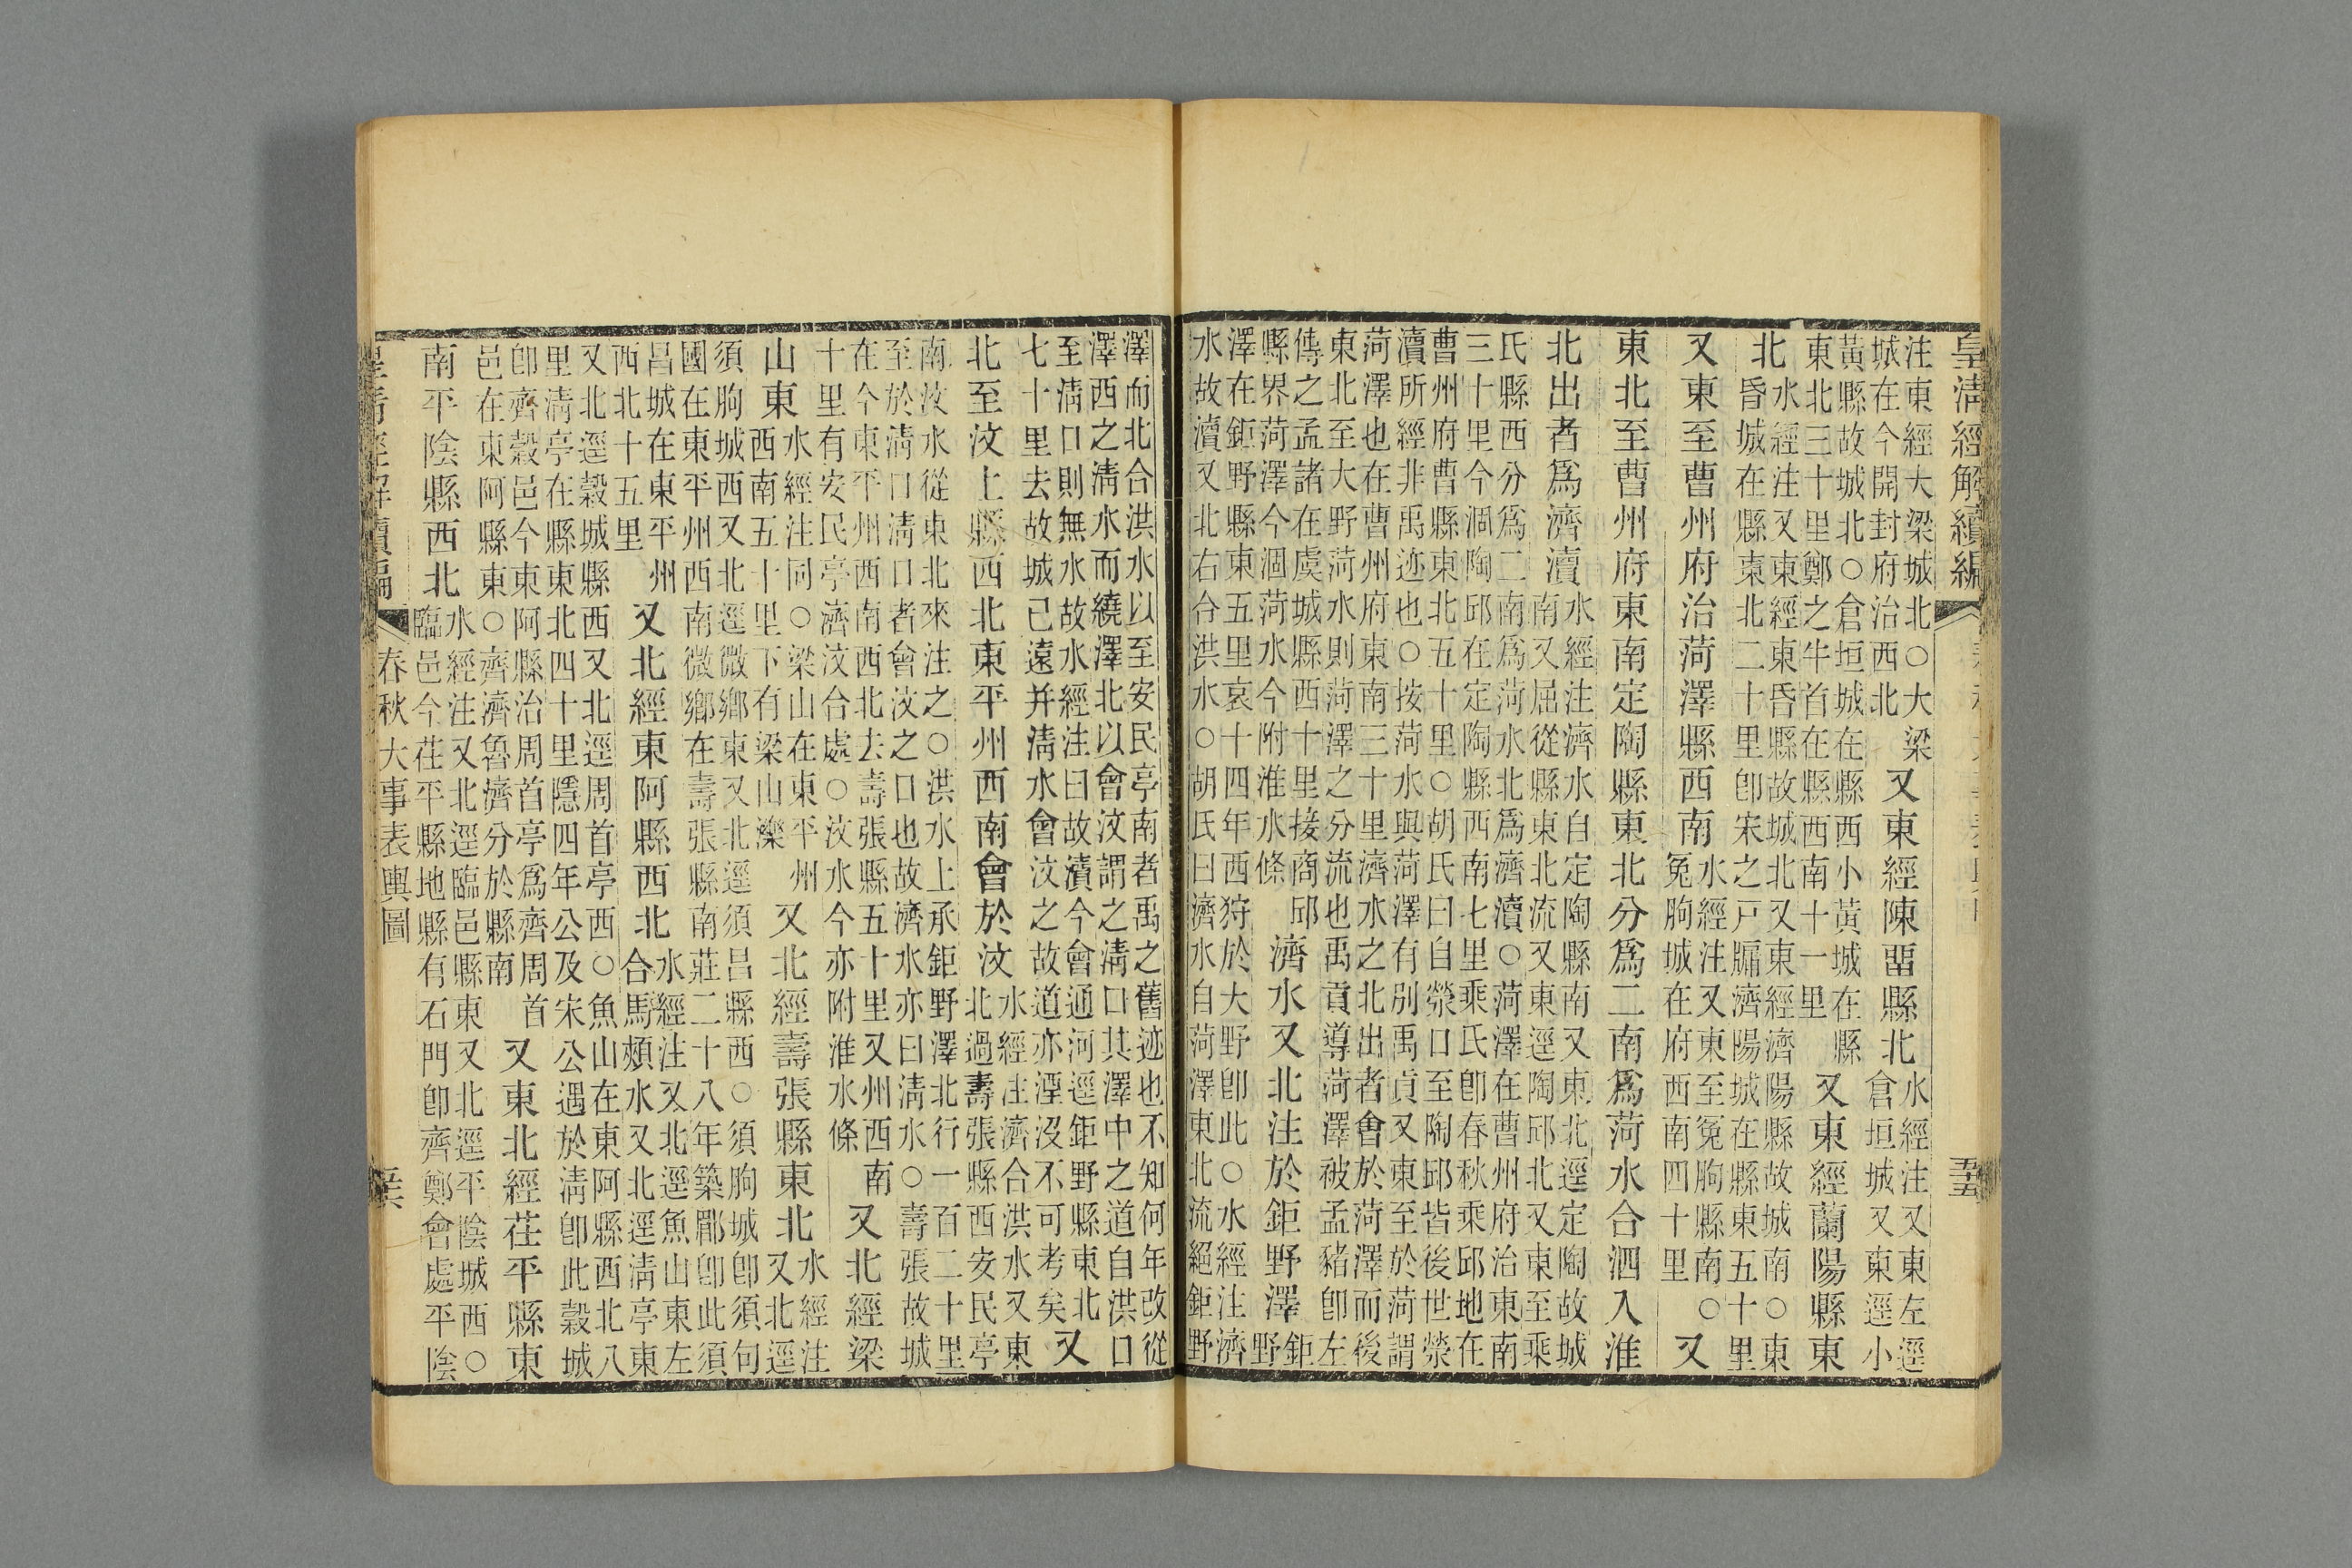 皇清經解續編
注東經大梁城北○大梁
城在今開封府治西北
又東經陳畱縣北
水經注又東左逕
倉垣城又東逕小
黃縣故城北○倉垣城在縣西小黃城在縣
東北三十里鄭之牛首在縣西南十一里
又東經蘭陽縣東
北
水經注又東經東昏縣故城北又東經濟陽縣故城南○東
昏城在縣東北二十里卽宋之戸牖濟陽城在縣東五十里
又東至曹州府治菏澤縣西南
水經注又東至冤朐縣南○
冤朐城在府西南四十里
又
東北至曹州府東南定陶縣東北分爲二南爲菏水合泗入淮
北出者爲濟瀆
水經注濟水自定陶縣南又東北逕定陶故城
南又屈從縣東北流又東逕陶邱北又東至乘
氏縣西分爲二南爲菏水北爲濟瀆○菏澤在曹州府治東南
三十里今涸陶邱在定陶縣西南七里乘氏卽春秋乘邱地在
曹州府曹縣東北五十里○胡氏曰自滎口至陶邱皆後世滎
瀆所經非禹迹也○按菏水與菏澤有別禹貢又東至於菏謂
菏澤也在曹州府東南三十里濟水之北出者會於菏澤而後
東北至大野菏水則菏澤之分流也禹貢導菏澤被孟豬卽左
傳之孟諸在虞城縣西十里接商邱
縣界菏澤今涸菏水今附淮水條
濟水又北注於鉅野澤
鉅
野
澤在鉅野縣東五里哀十四年西狩於大野卽此○水經注濟
水故瀆又北右合洪水○胡氏曰濟水自菏澤東北流絕鉅野
澤而北合洪水以至安民亭南者禹之舊迹也不知何年改從
澤西之清水而繞澤北以會汶謂之清口其澤中之道自洪口
至清口則無水故水經注曰故瀆今會通河逕鉅野縣東北
七十里去故城已遠并清水會汶之故道亦湮沒不可考矣
又
北至汶上縣西北東平州西南會於汶
水經注濟合洪水又東
北過壽張縣西安民亭
南汶水從東北來注之○洪水上承鉅野澤北行一百二十里
至於清口清口者會汶之口也故濟水亦曰清水○壽張故城
在今東平州西南西北去壽張縣五十里又州西南
十里有安民亭濟汶合處○汶水今亦附淮水條
又北經梁
山東
水經注同○梁山在東平州
西南五十里下有梁山濼
又北經壽張縣東北
水經注
又北逕
須朐城西又北逕微鄉東又北逕須昌縣西○須朐城卽須句
國在東平州西南微鄉在壽張縣南莊二十八年築郿卽此須
昌城在東平州
西北十五里
又北經東阿縣西北
水經注又北逕魚山東左
合馬頰水又北逕清亭東
又北逕穀城縣西又北逕周首亭西○魚山在東阿縣西北八
里清亭在縣東北四十里隱四年公及宋公遇於清卽此穀城
卽齊穀邑今東阿縣治周首亭爲齊周首
邑在東阿縣東○齊濟魯濟分於縣南
又東北經茌平縣東
南平陰縣西北
水經注又北逕臨邑縣東又北逕平陰城西○
臨邑今茌平縣地縣有石門卽齊鄭會處平陰
皇清經解續編
春秋大事表輿圖